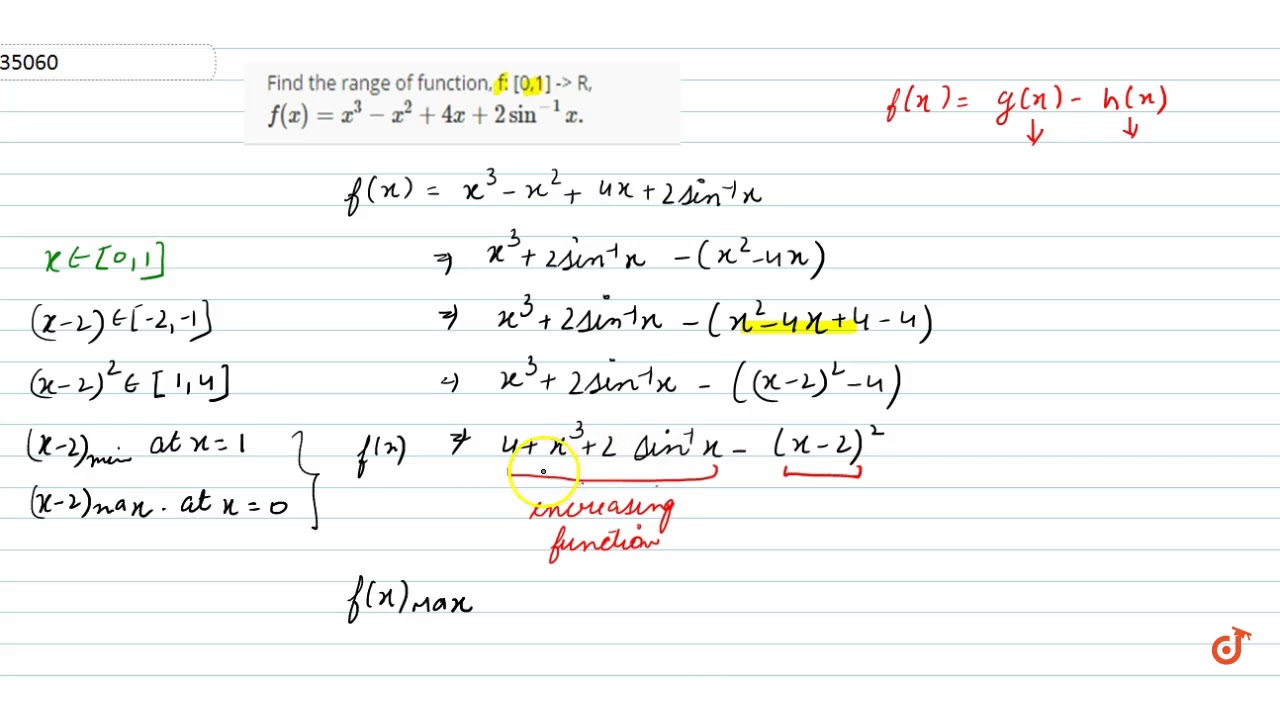 35060
Find the range of function, f: [0,1] -> R,
f(x) = x³ − x² + 4x + 2 sin⁻¹ x.
f(x) = g(x) - h(x)
↓ ↓
f(x) = x³ - x² + 4x + 2 sin⁻¹x
x ∈ [0,1]
⇒ x³ + 2 sin⁻¹x - (x² - 4x)
(x-2) ∈ [-2,-1]
⇒ x³ + 2 sin⁻¹x - (x² - 4x + 4 - 4)
(x-2)² ∈ [1,4]
⇒ x³ + 2 sin⁻¹x - ((x-2)² - 4)
(x-2)min at x = 1
f(x) ⇒ 4 + x³ + 2 sin⁻¹x - (x-2)²
(x-2)max. at x = 0
increasing
function
f(x)max